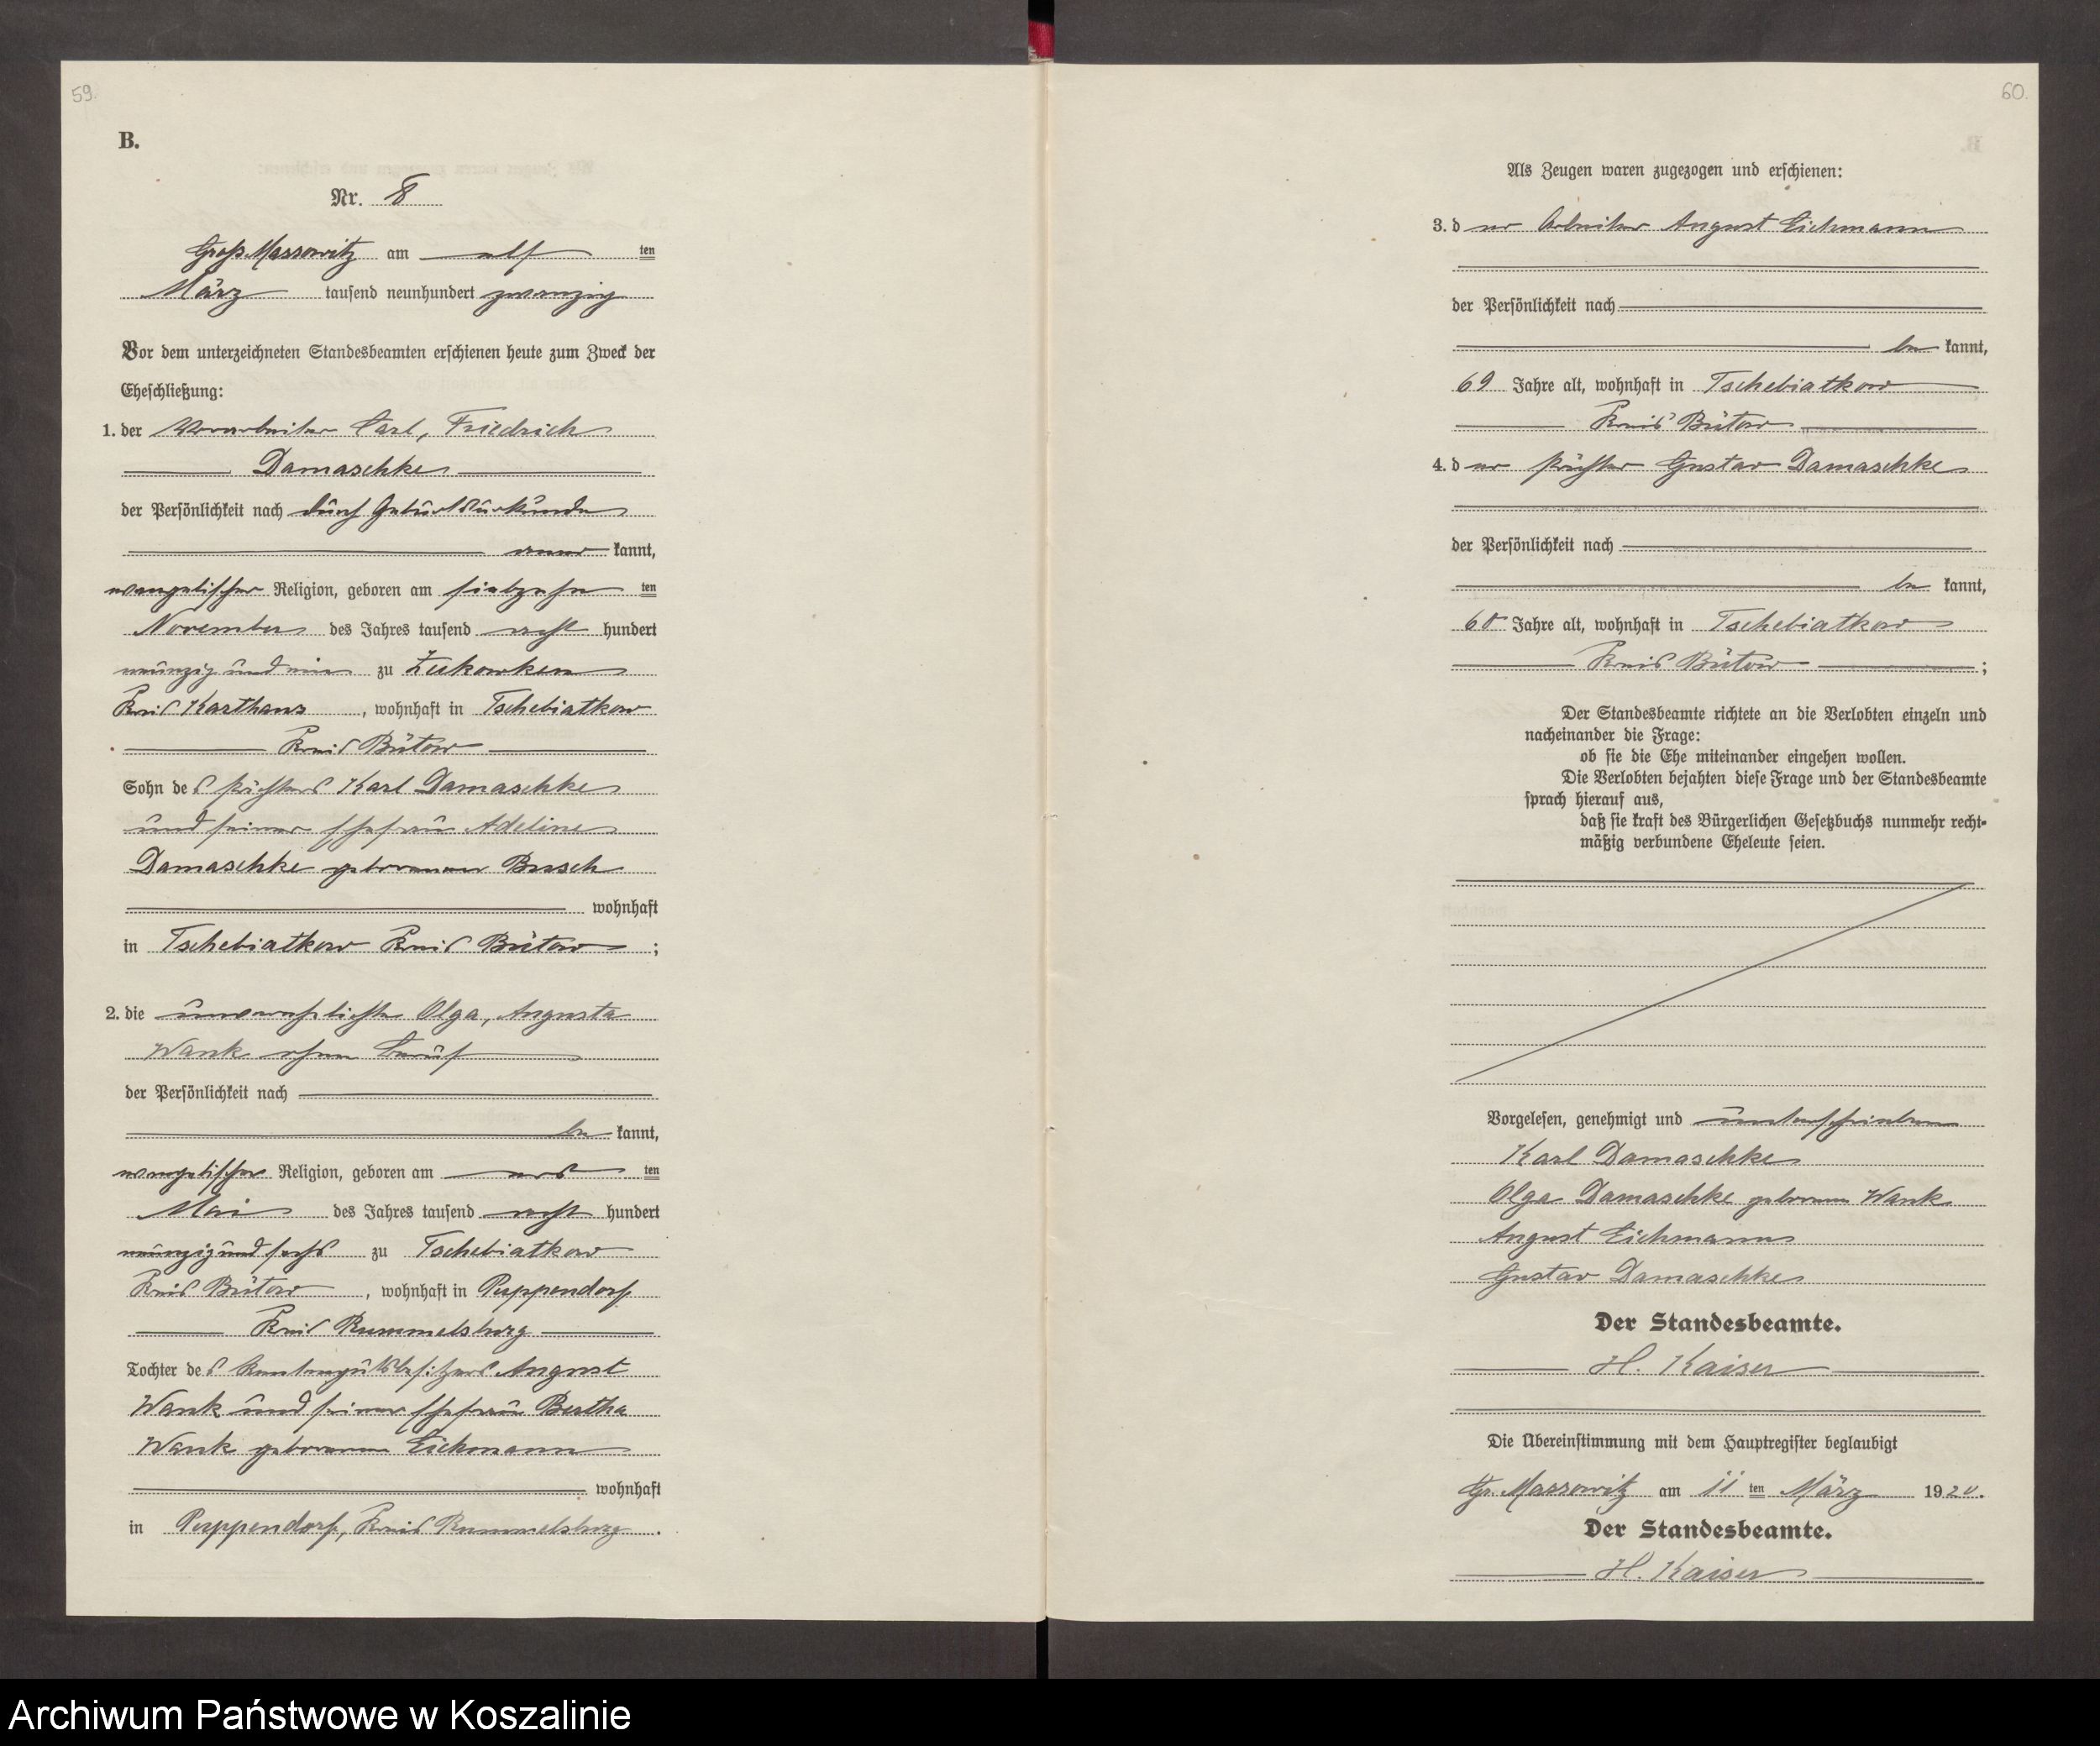 59.
B.
Nr. 8
Groß Massowitz am elf ten
März tausend neunhundert zwanzig
Vor dem unterzeichneten Standesbeamten erschienen heute zum Zweck der
Eheschließung:
1. der Vorarbeiter Carl, Friedrich
Damaschke
der Persönlichkeit nach durch Geburtsurkunde
aner kannt,
evangelischer Religion, geboren am siebzehn ten
November des Jahres tausend acht hundert
neunzig und ein zu Zukowken
Kreis Karthaus, wohnhaft in Tschebiatkow
Kreis Bütow
Sohn des Pächters Karl Damaschke
und seiner Ehefrau Adeline
Damaschke geborenen Busch
wohnhaft
in Tschebiatkow Kreis Bütow;
2. die unverehelichte Olga, Augusta
Wank ohne Beruf
der Persönlichkeit nach
be kannt,
evangelischer Religion, geboren am ers ten
Mai des Jahres tausend acht hundert
neunzig und sechs zu Tschebiatkow
Kreis Bütow, wohnhaft in Puppendorf
Kreis Rummelsburg
Tochter des Rentengutsbesitzers August
Wank und seiner Ehefrau Bertha
Wank geborenen Eichmann
wohnhaft
in Puppendorf, Kreis Rummelsburg.
60.
Als Zeugen waren zugezogen und erschienen:
3. der Arbeiter August Eichmann
der Persönlichkeit nach
be kannt,
69 Jahre alt, wohnhaft in Tschebiatkow
Kreis Bütow
4. der Pächter Gustav Damaschke
der Persönlichkeit nach
be kannt,
Jahre alt, wohnhaft in Tschebiatkow
Kreis Bütow;
Der Standesbeamte richtete an die Verlobten einzeln und
nacheinander die Frage:
ob sie die Ehe miteinander eingehen wollen.
Die Verlobten bejahten diese Frage und der Standesbeamte
sprach hierauf aus,
daß sie kraft des Bürgerlichen Gesetzbuchs nunmehr recht-
mäßig verbundene Eheleute seien.
Vorgelesen, genehmigt und unterschrieben
Karl Damaschke
Olga Damaschke geborene Wank
August Eichmann
Gustav Damaschke
Der Standesbeamte.
H. Kaiser
Die Übereinstimmung mit dem Hauptregister beglaubigt
Gr. Massowitz am 11 ten März 1920.
Der Standesbeamte.
H. Kaiser
Archiwum Państwowe w Koszalinie